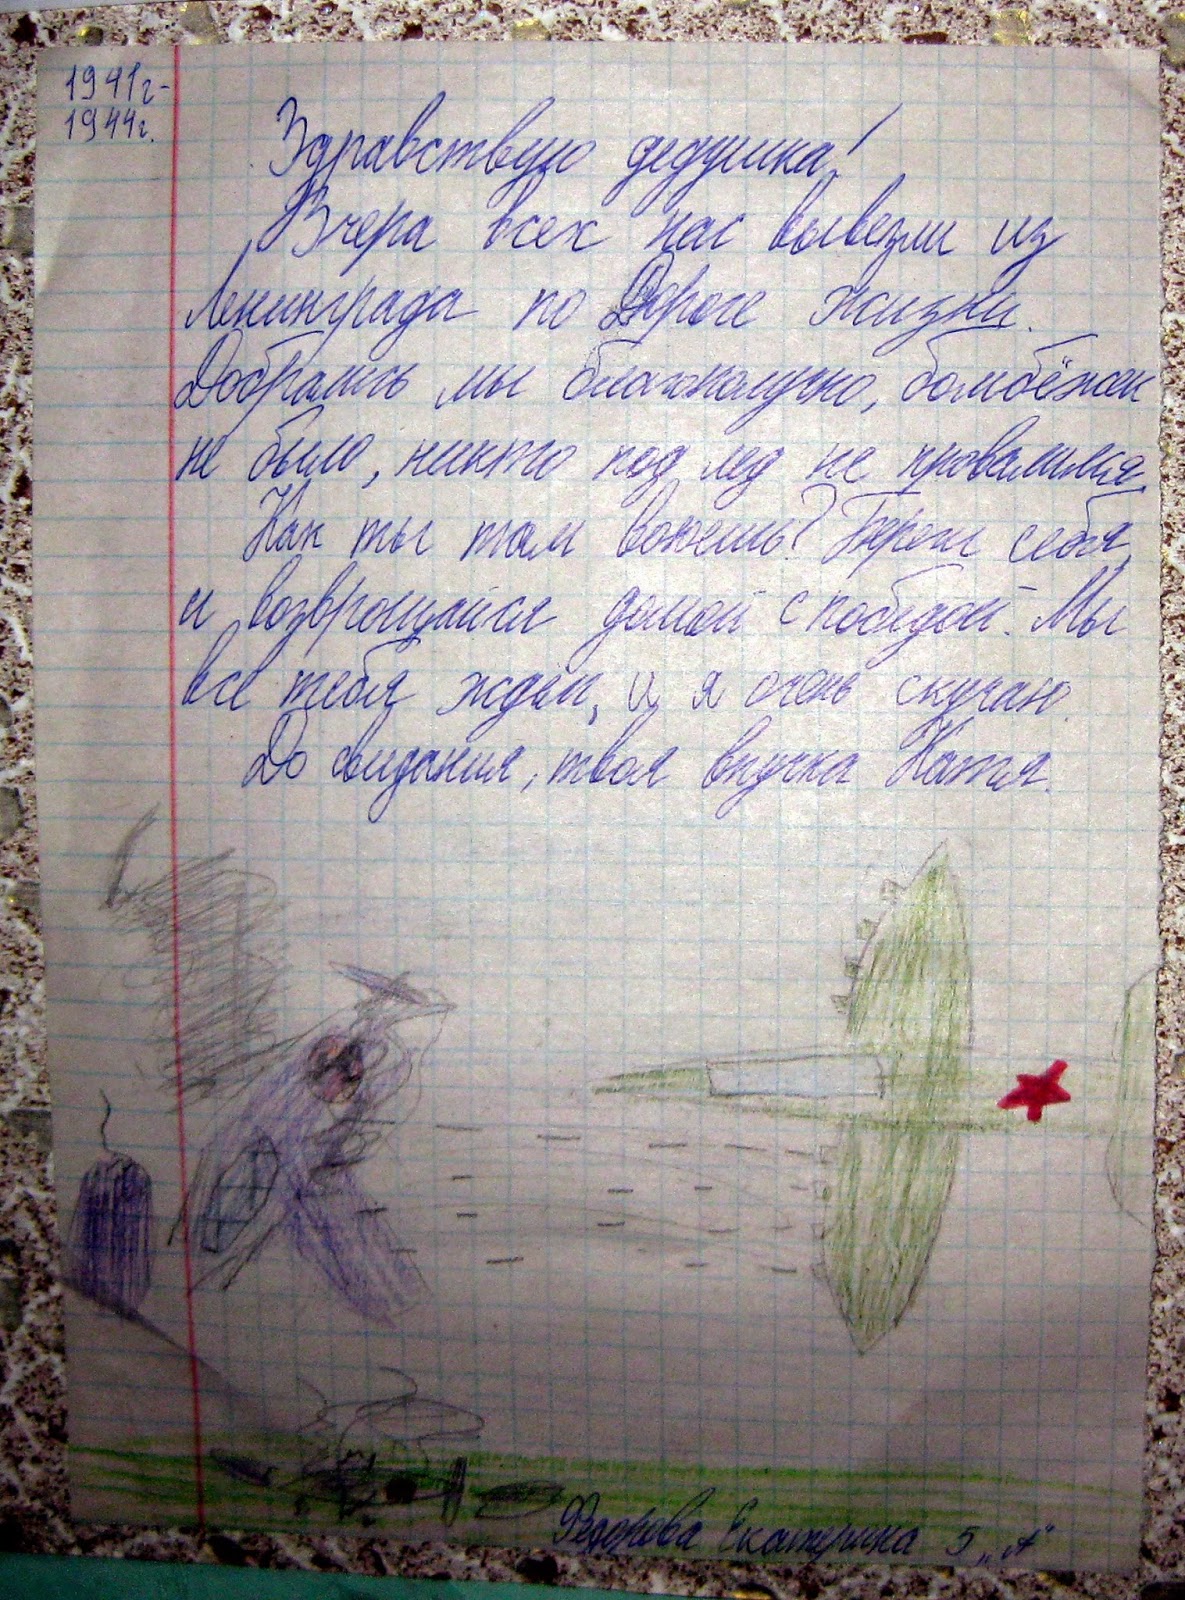 1941г-
1944г.
Здравствую дедушка!
Вчера всех нас вывезли из
Ленинграда по Дороге жизни.
Добрались мы благополучно, бомбёжек
не было, никто под лед не провалился.
Как ты там воюешь? Береги себя
и возврощайся домой с победой. Мы
все тебя ждём, и я очень скучаю.
До свидания, твоя внучка Катя.
Федорова Екатерина 5 „А"